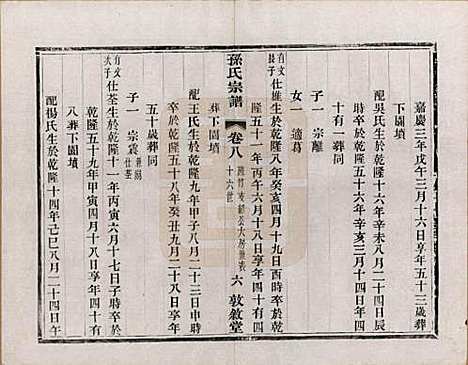 嘉慶三年戊午三月十六日享年五十三歲葬
下園墳
配吳氏生於乾隆十六年辛未八月二十四日辰
時卒於乾隆五十六年辛亥三月十四日享年四
十有一葬同
子一 宗離
女一 適葛
有文長子 仕雄生於乾隆八年癸亥四月二十九日酉時卒於乾
隆五十一年丙午六月十八日享年四十四歲
葬下園墳
孫氏宗譜 卷八 十六世 六 敦敘堂
配王氏生於乾隆九年甲子八月二十三日申時
卒於乾隆五十八年癸丑九月二十八日享年
五十歲葬同
子一 宗震
有文次子 仕荃生於乾隆十一年丙寅六月十七日子時卒於
乾隆五十九年甲寅四月十八日享年四十九歲
八葬下園墳
配楊氏生於乾隆十四年己巳八月二十四日午